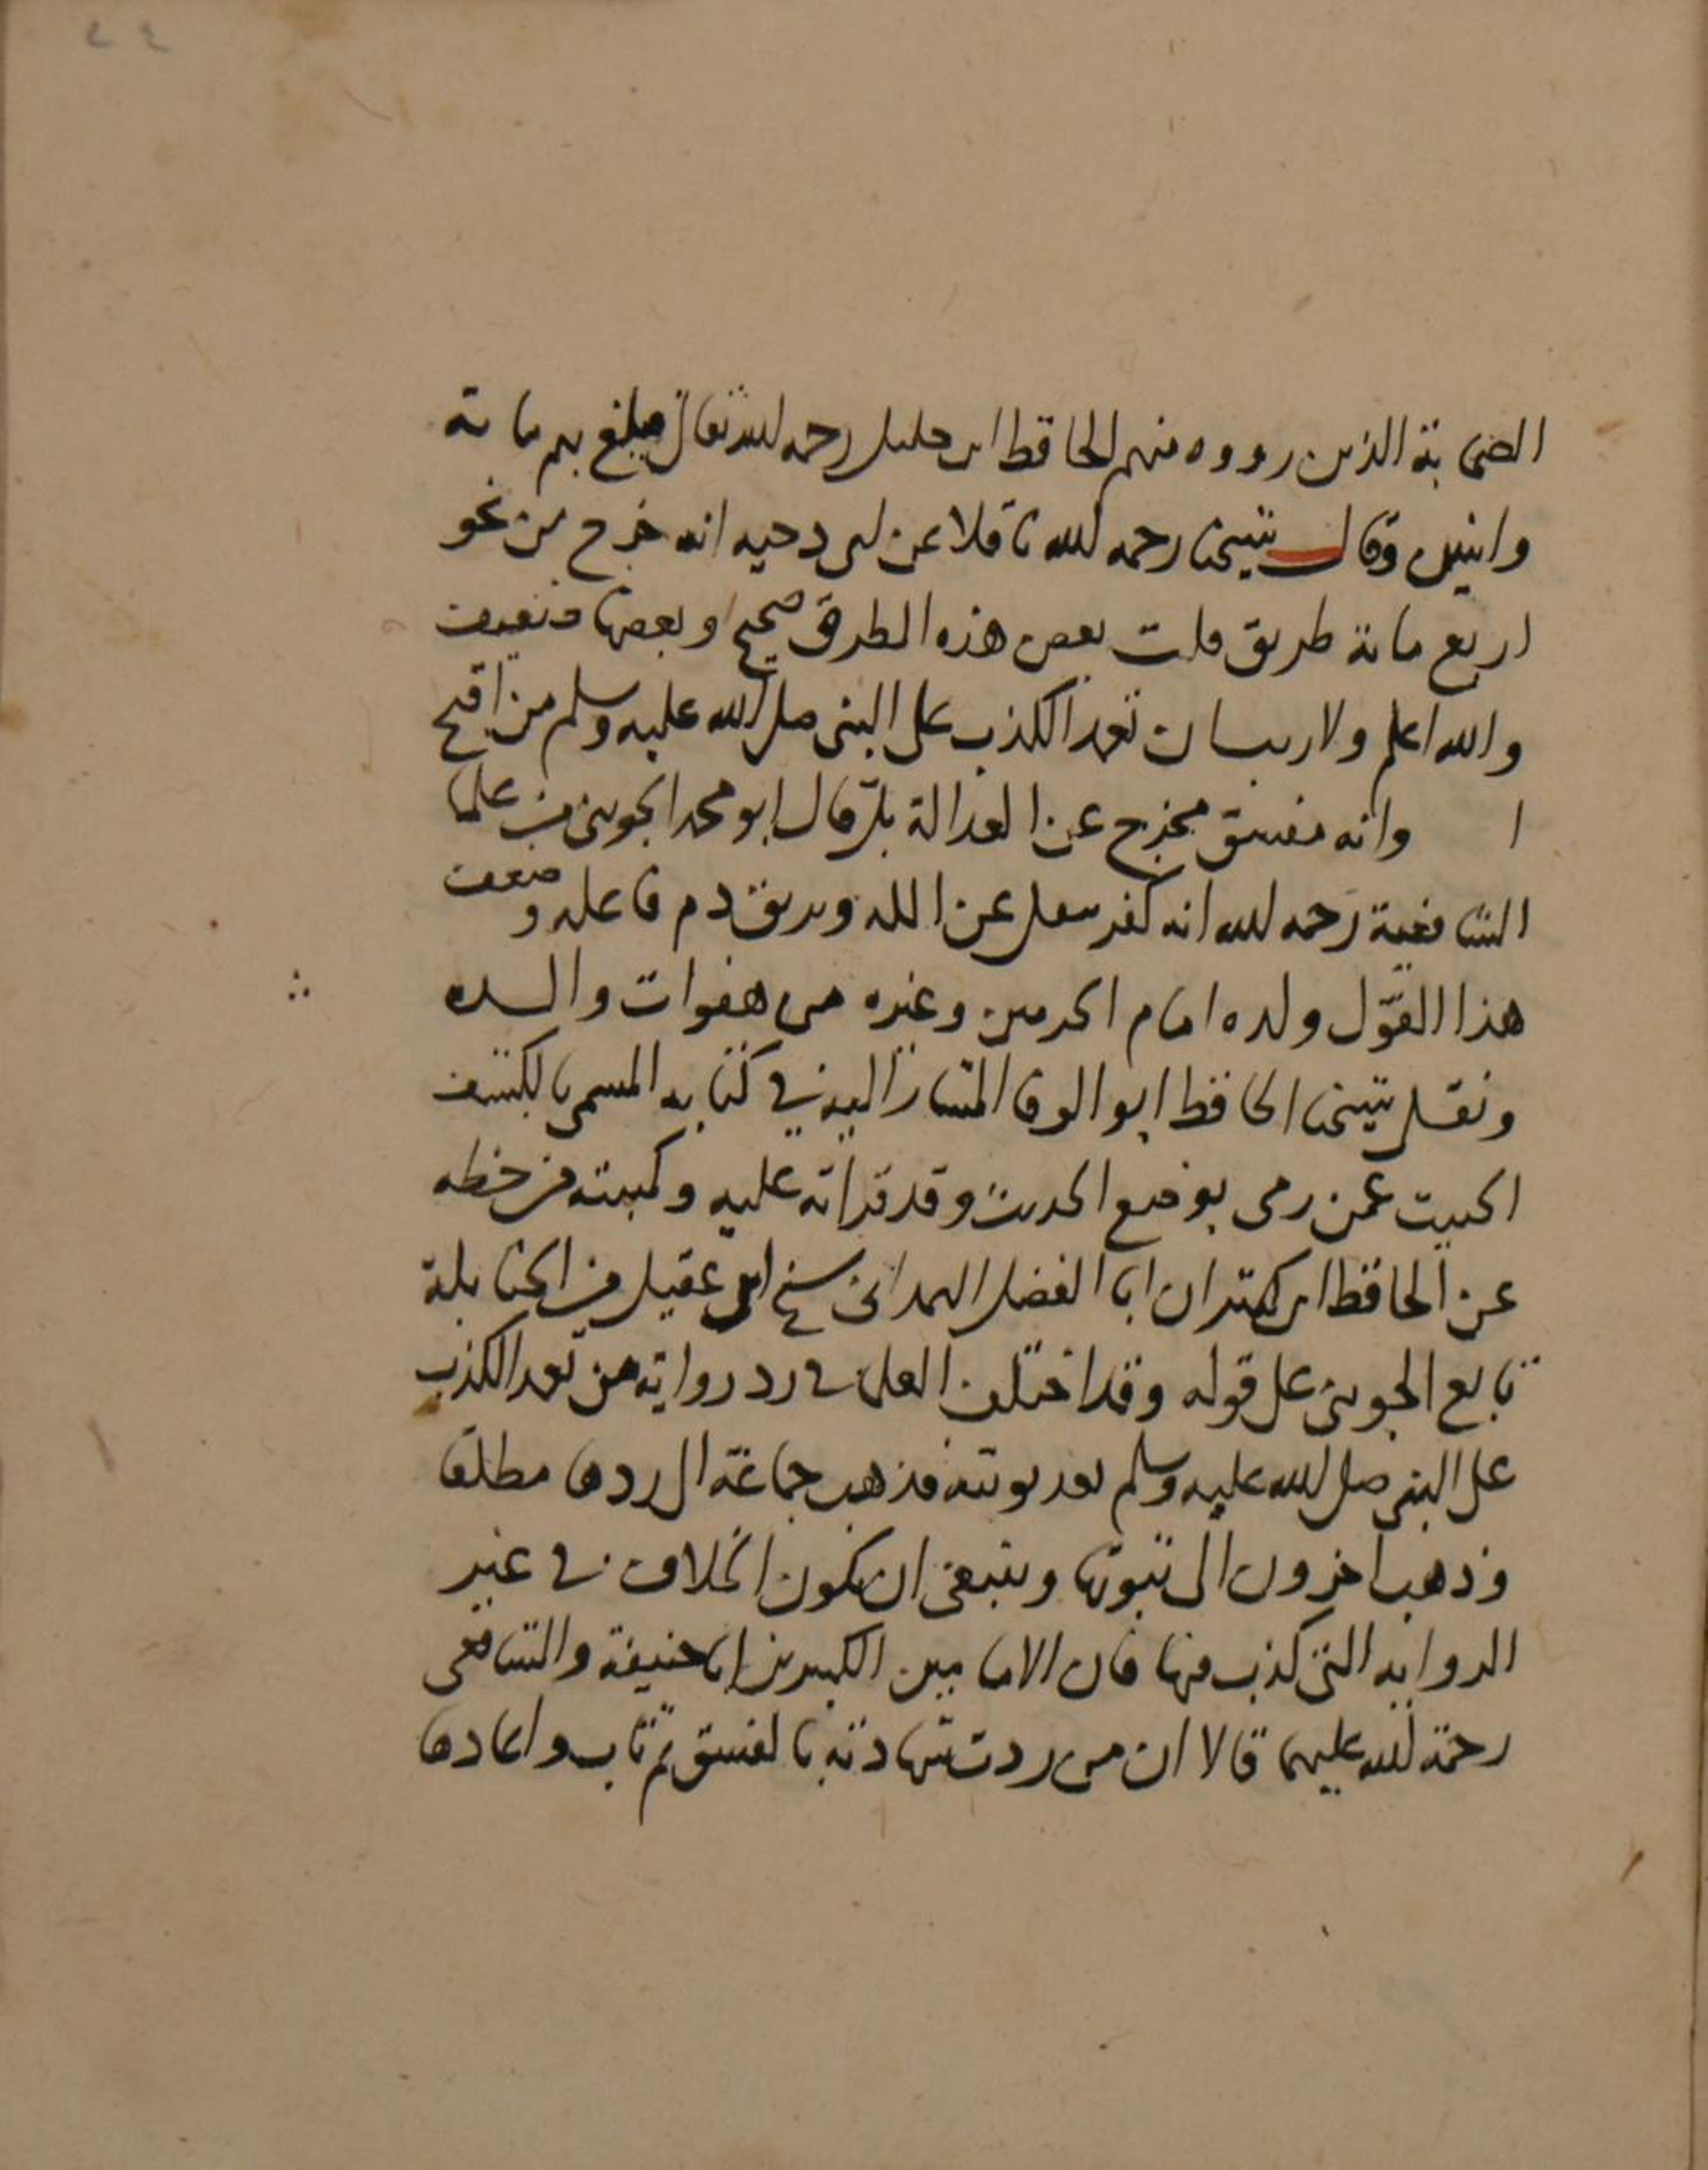 ٢٤
الصحابة الذين رووه منهم الحافظ ابن خليل رحمه الله تعالى فبلغ بهم مائة
واثنين وقال شيخنا رحمه الله ناقلا عن ابن دحيه انه خرج من نحو
اربع مائة طريق قلت بعض هذه الطرق صحيح وبعضها ضعيف
والله اعلم ولا ريب ان تعمد الكذب على النبي صلى الله عليه وسلم من اقبح
ا وانه مفسق مخرج عن العدالة بل قال ابو محمد الجويني من علما
الشافعية رحمه الله انه كفر ينقل عن الملة ويريق دم فاعله وضعف
هذا القول ولده امام الحرمين وغيره من هفوات والده
ونقل شيخنا الحافظ ابو الوفا المشار اليه في كتابه المسمى بالكشف
الحثيث عمن رمى بوضع الحديث وقد قراته عليه وكتبته من خطه
عن الحافظ ابن كثير ان ابا الفضل الهمداني شيخ ابن عقيل من الحنابلة
تابع الجويني على قوله وقد اختلف العلما في رد رواية من تعمد الكذب
على النبي صلى الله عليه وسلم بعد توبته فذهب جماعة الى ردها مطلقا
وذهب اخرون الى ثبوتها وينبغي ان يكون الخلاف في غير
الرواية التي كذب فيها فان الامامين الكبيرين ابا حنيفة والشافعي
رحمة الله عليهما قالا ان من ردت شهادته بالفسق ثم تاب واعادها